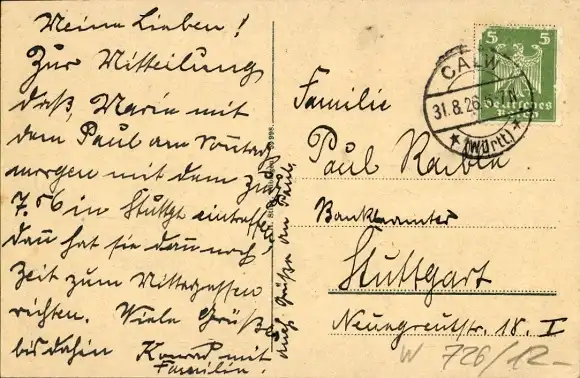 Meine Lieben!
Zur Mitteilung
daß Maria mit
dem Paul am Sonntag
morgen mit dem Zug
7.56 in Stuttgt eintreffen
dan hat sie dan noch
Zeit zum Mittagessen
richten. Viele Grüße
bis dahin Konrad mit
Familie.
auch Grüße an Paul.
5 5
Deutsches
Reich
CALW
31.8.26.6-7N.
* (Württ) *
Familie
Paul Raible
Bankbeamter
Stuttgart
Neuegreutstr. 18. I
W 726/12-